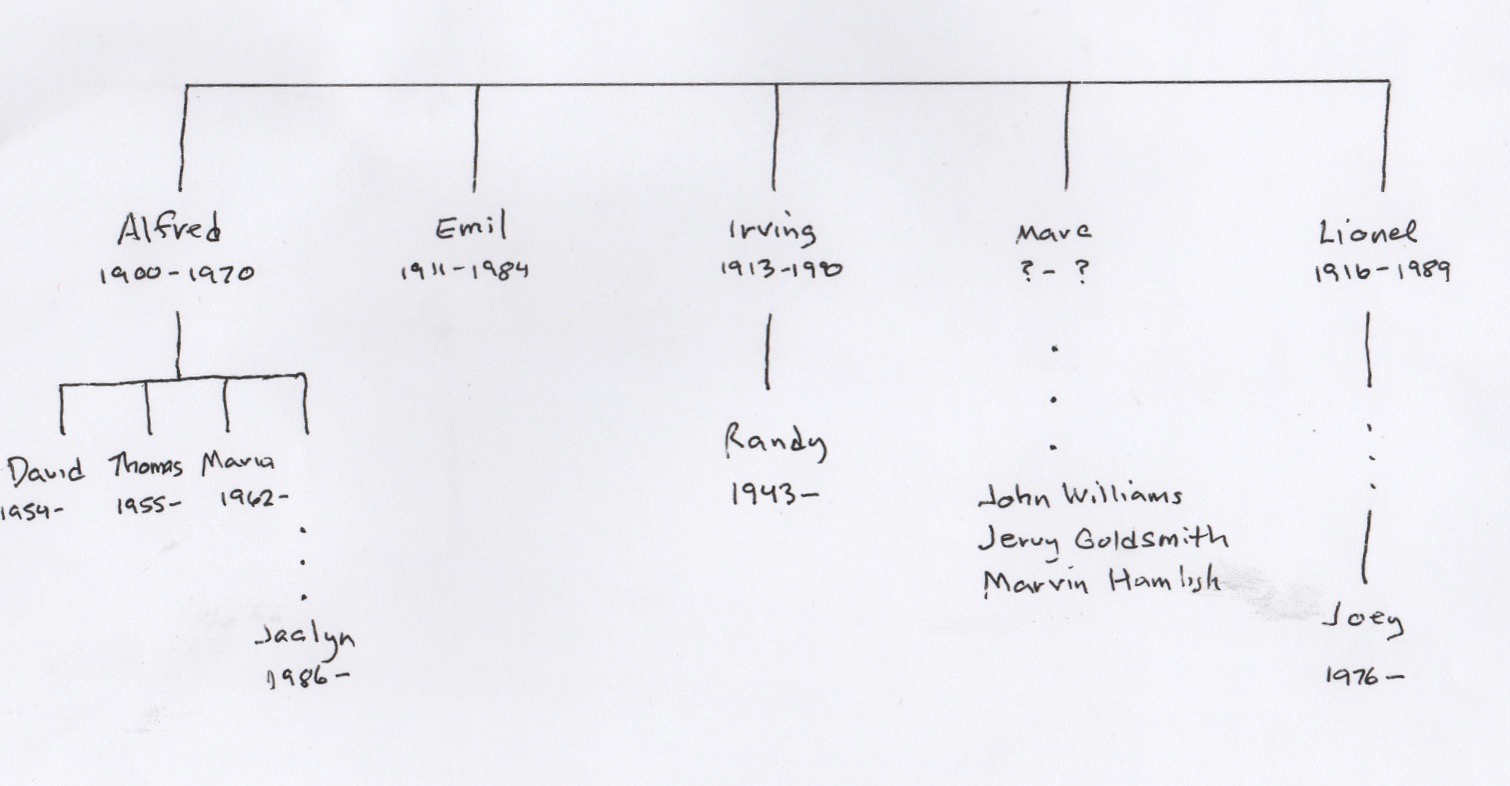 Alfred
1900-1970
Emil
1911-1984
Irving
1913-1990
Marc
? - ?
Lionel
1916-1989
David
1954-
Thomas
1955-
Maria
1962-
Jaclyn
1986-
Randy
1943-
John Williams
Jerry Goldsmith
Marvin Hamlish
Joey
1976-